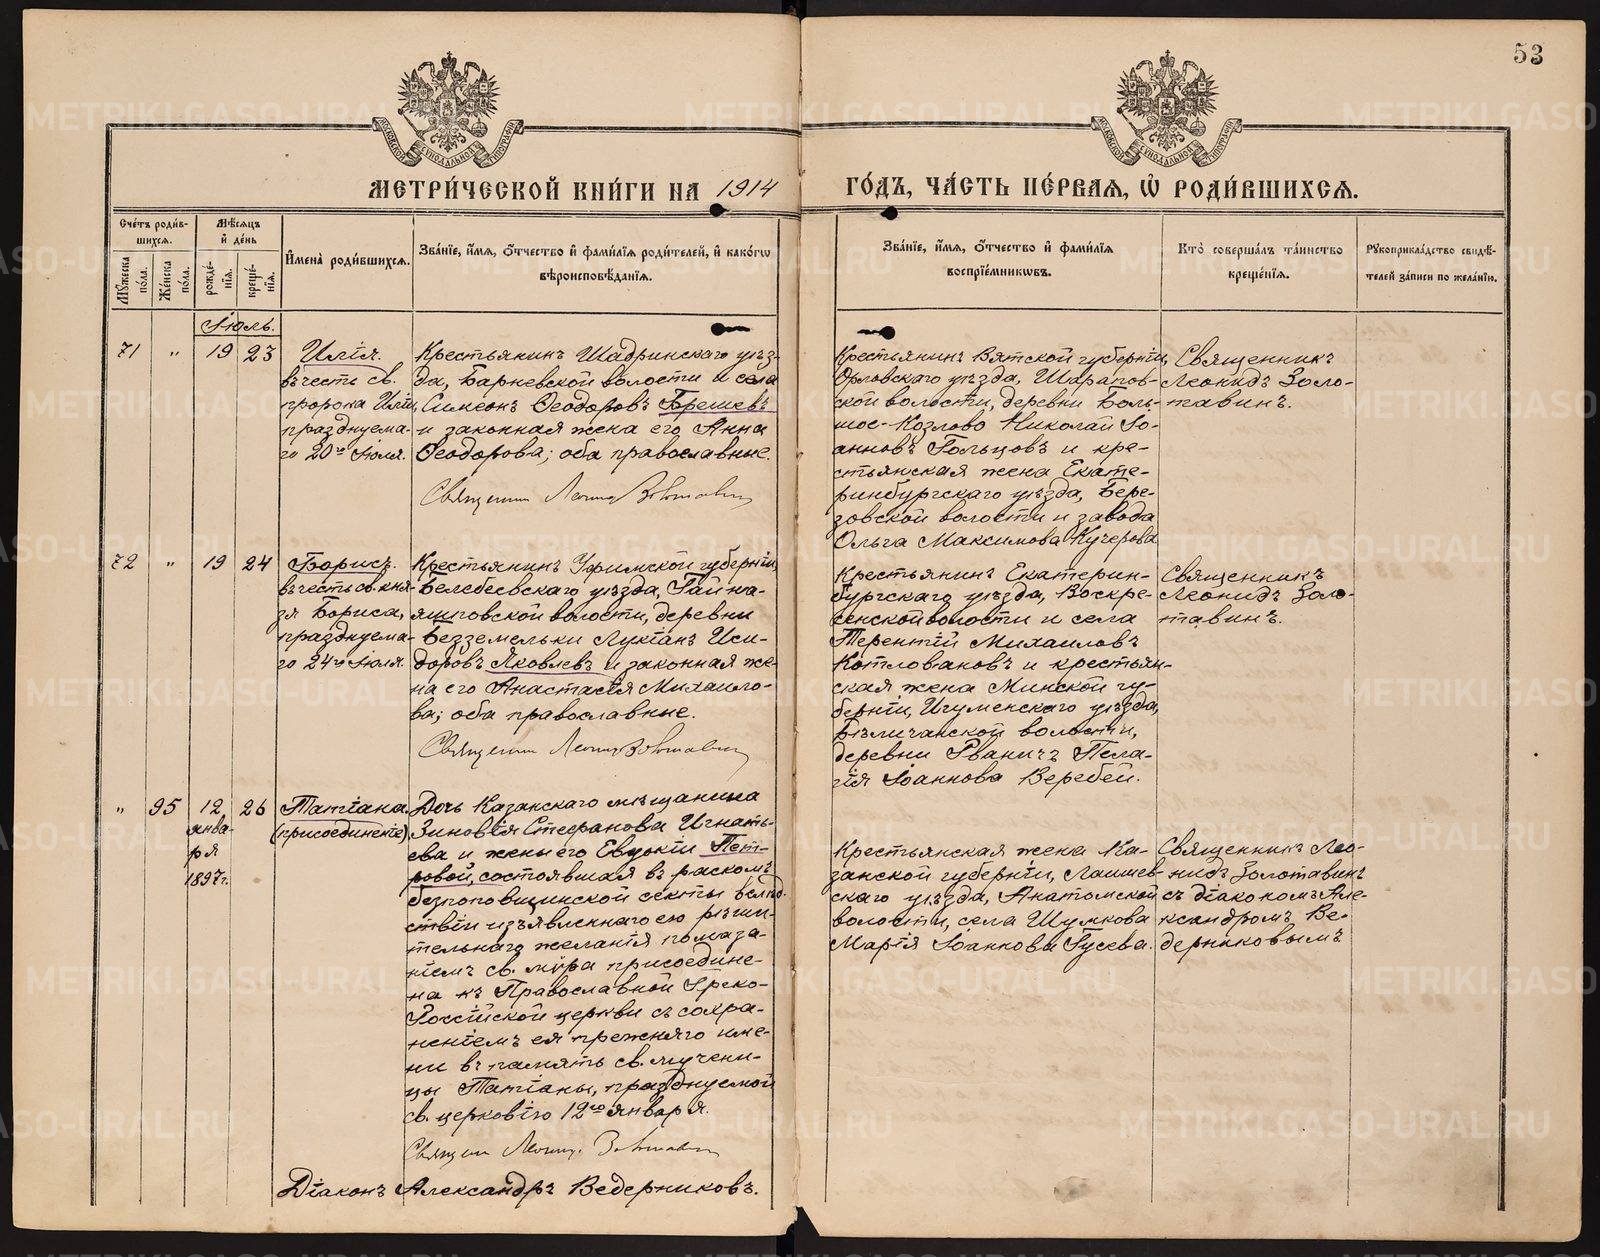 53
МЕТРИ́ЧЕСКОЙ КНИ́ГИ НА 1914
ГО́ДЪ, ЧА́СТЬ ПЕ́РВАЯ, Ѡ РОДИ́ВШИХСѦ.
Сче́тъ роди́в-
шихсѧ.
Мꙋ́жеска по́ла.
Же́нска по́ла.
Мѣ́сѧцъ
и҆ де́нь
рожде́-
нїѧ.
креще́-
нїѧ.
И҆мена̀ роди́вшихсѧ.
Зва́нїе, и҆́мѧ, ѻ҆́тчество и҆ фами́лїѧ роди́телей, и҆ како́гѡ
вѣроисповѣ́данїѧ.
Зва́нїе, и҆́мѧ, ѻ҆́тчество и҆ фами́лїѧ
воспрїе́мникѡвъ.
Кто̀ соверша́лъ та́инство
креще́нїѧ.
Рꙋкоприкла́дство свидѣ́-
телей за́писи по жела́нїю.
Іюль.
71 " 19 23
Илія.
въ честь св.
пророка Иліи,
празднуема-
го 20го Іюля.
Крестьянинъ Шадринскаго уѣз-
да, Барневской волости и села
Симеонъ Ѳеодоровъ Брешевъ
и законная жена его Анна
Ѳеодорова; оба православные.
Священникъ Леонидъ Золотавинъ
Крестьянинъ Вятской губерніи,
Орловскаго уѣзда, Шарапов-
ской волости, деревни Боль-
шое-Козлово Николай Іо-
анновъ Гольцовъ и кре-
стьянская жена Екате-
ринбургскаго уѣзда, Бере-
зовской волости и завода
Ольга Максимова Кучерова
Священникъ
Леонидъ Золо-
тавинъ.
72 " 19 24
Борисъ.
въ честь св. кня-
зя Бориса,
празднуема-
го 24го Іюля.
Крестьянинъ Уфимской губерніи,
Белебеевскаго уѣзда, Гайна-
ямовской волости, деревни
Безземельки Лукіанъ Иси-
доровъ Яковлевъ и законная же-
на его Анастасія Михаило-
ва; оба православные.
Священникъ Леонидъ Золотавинъ
Крестьянинъ Екатерин-
бургскаго уѣзда, Воскре-
сенской волости и села
Терентій Михаиловъ
Котловановъ и крестьян-
ская жена Минской гу-
берніи, Игуменскаго уѣзда,
Бѣличанской волости,
деревни Рваничъ Пела-
гія Іоаннова Веребей.
Священникъ
Леонидъ Золо-
тавинъ.
" 95 12 26
янва-
ря
1897г.
Татіана.
(присоединеніе)
Дочь Казанскаго мѣщанина
Зиновія Стефанова Игнать-
ева и жены его Евдокіи Пет-
ровой, состоявшая въ раскольн.
безпоповщинской секты вслѣд-
ствіи изъявленнаго ею рѣши-
тельнаго желанія помаза-
ніемъ св. мѵра присоедине-
на къ Православной Греко-
Россійской церкви съ сохра-
неніемъ ея прежняго име-
ни въ память св. мучени-
цы Татіаны, празднуемой
св. церковію 12го января.
Священникъ Леонидъ Золотавинъ
Діаконъ Александръ Ведерниковъ.
Крестьянская жена Ка-
занской губерніи, Лаишев-
скаго уѣзда, Анатомской
волости, села Шумкова
Марія Іоаннова Гусева.
Священникъ Лео-
нидъ Золотавинъ
съ діакономъ Але-
ксандромъ Ве-
дерниковымъ
METRIKI.GASO-URAL.RU